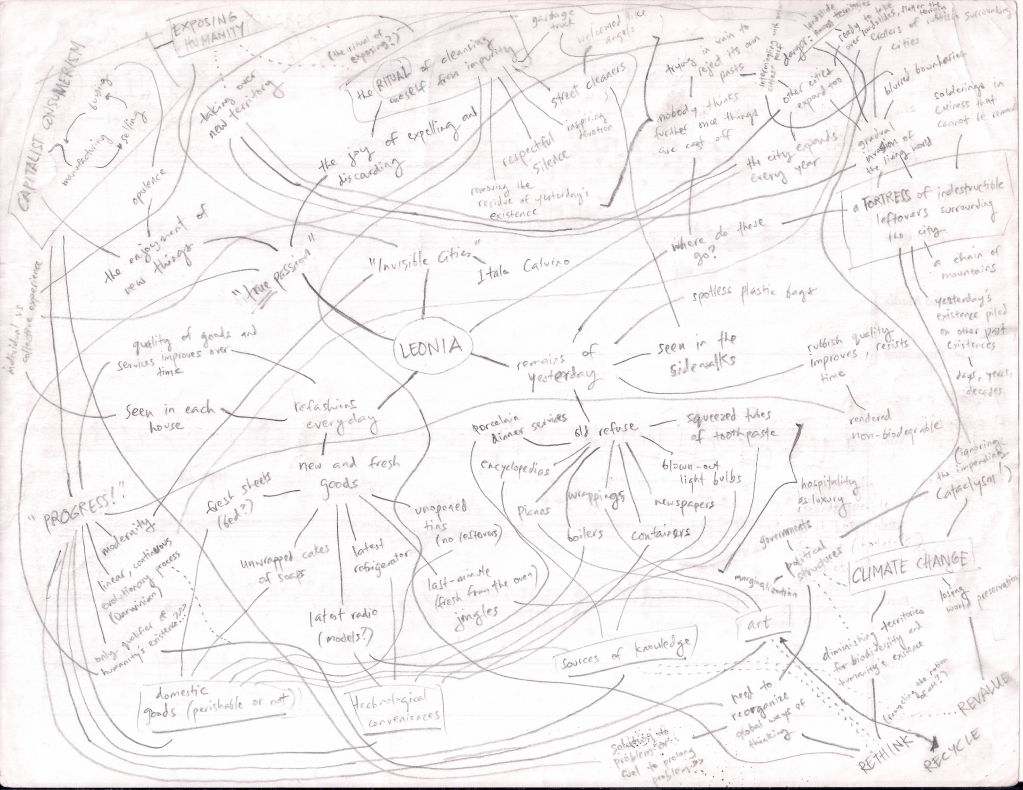 EXPOSING
HUMANITY
CAPITALIST CONSUMERISM
buying
selling
manufacturing
opulence
taking over
new territory
(the ritual of
exposing?)
the RITUAL of cleansing
oneself
from impurity
garbage
truck
welcomed like
angels
street cleaners
inspiring
devotion
respectful
silence
removing the
residue of yesterday's
existence
the joy of expelling and
discarding
trying in vain to
reject its own
pasts
nobody thinks
further once things
are cast off
other cities
expand too
the city expands
every year
cities
blurred boundaries
gradual
invasion of
the living world
solderings in
cuirass that
cannot be
a FORTRESS of indestructible
leftovers surrounding
the city
a chain of
mountains
yesterday's
existence piled
on other past
existences
days, years,
decades
where do these
go?
the enjoyment of
new things
"true passion"
"Invisible Cities"
Italo Calvino
individual vs
collective experience
LEONIA
spotless plastic bags
seen in the
sidewalks
remains of
yesterday
rubbish quality
improves, resists
time
rendered
non-biodegrable
quality of goods and
services improves over
time
seen in each
house
refashions
everyday
new and fresh
goods
fresh sheets
(bed?)
unwrapped cakes
of soaps
latest radio
(models?)
latest
refrigerator
unopened
tins
last-minute
(fresh from the oven)
jingles
porcelain
dinner services
old refuse
squeezed tubes
of toothpaste
encyclopedias
blown-out
light bulbs
pianos
wrappings
newspapers
boilers
containers
hospitality
as luxury
(ignoring
the impending
cataclysm!)
"PROGRESS!"
modernity
linear, continuous
evolutionary process
(Darwinian)
only qualifier of
humanity's existence???
governments
political
structures
marginalization
CLIMATE CHANGE
losing
world preservation
diminishing territories
for biodiversity and
humanity's existence
art
sources of knowledge
domestic
goods (perishable or not)
technological
conveniences
need to
reorganize
global ways of
thinking
solutions to
problem or
fuel to prolong
problem??
RETHINK
RECYCLE
REVALUE